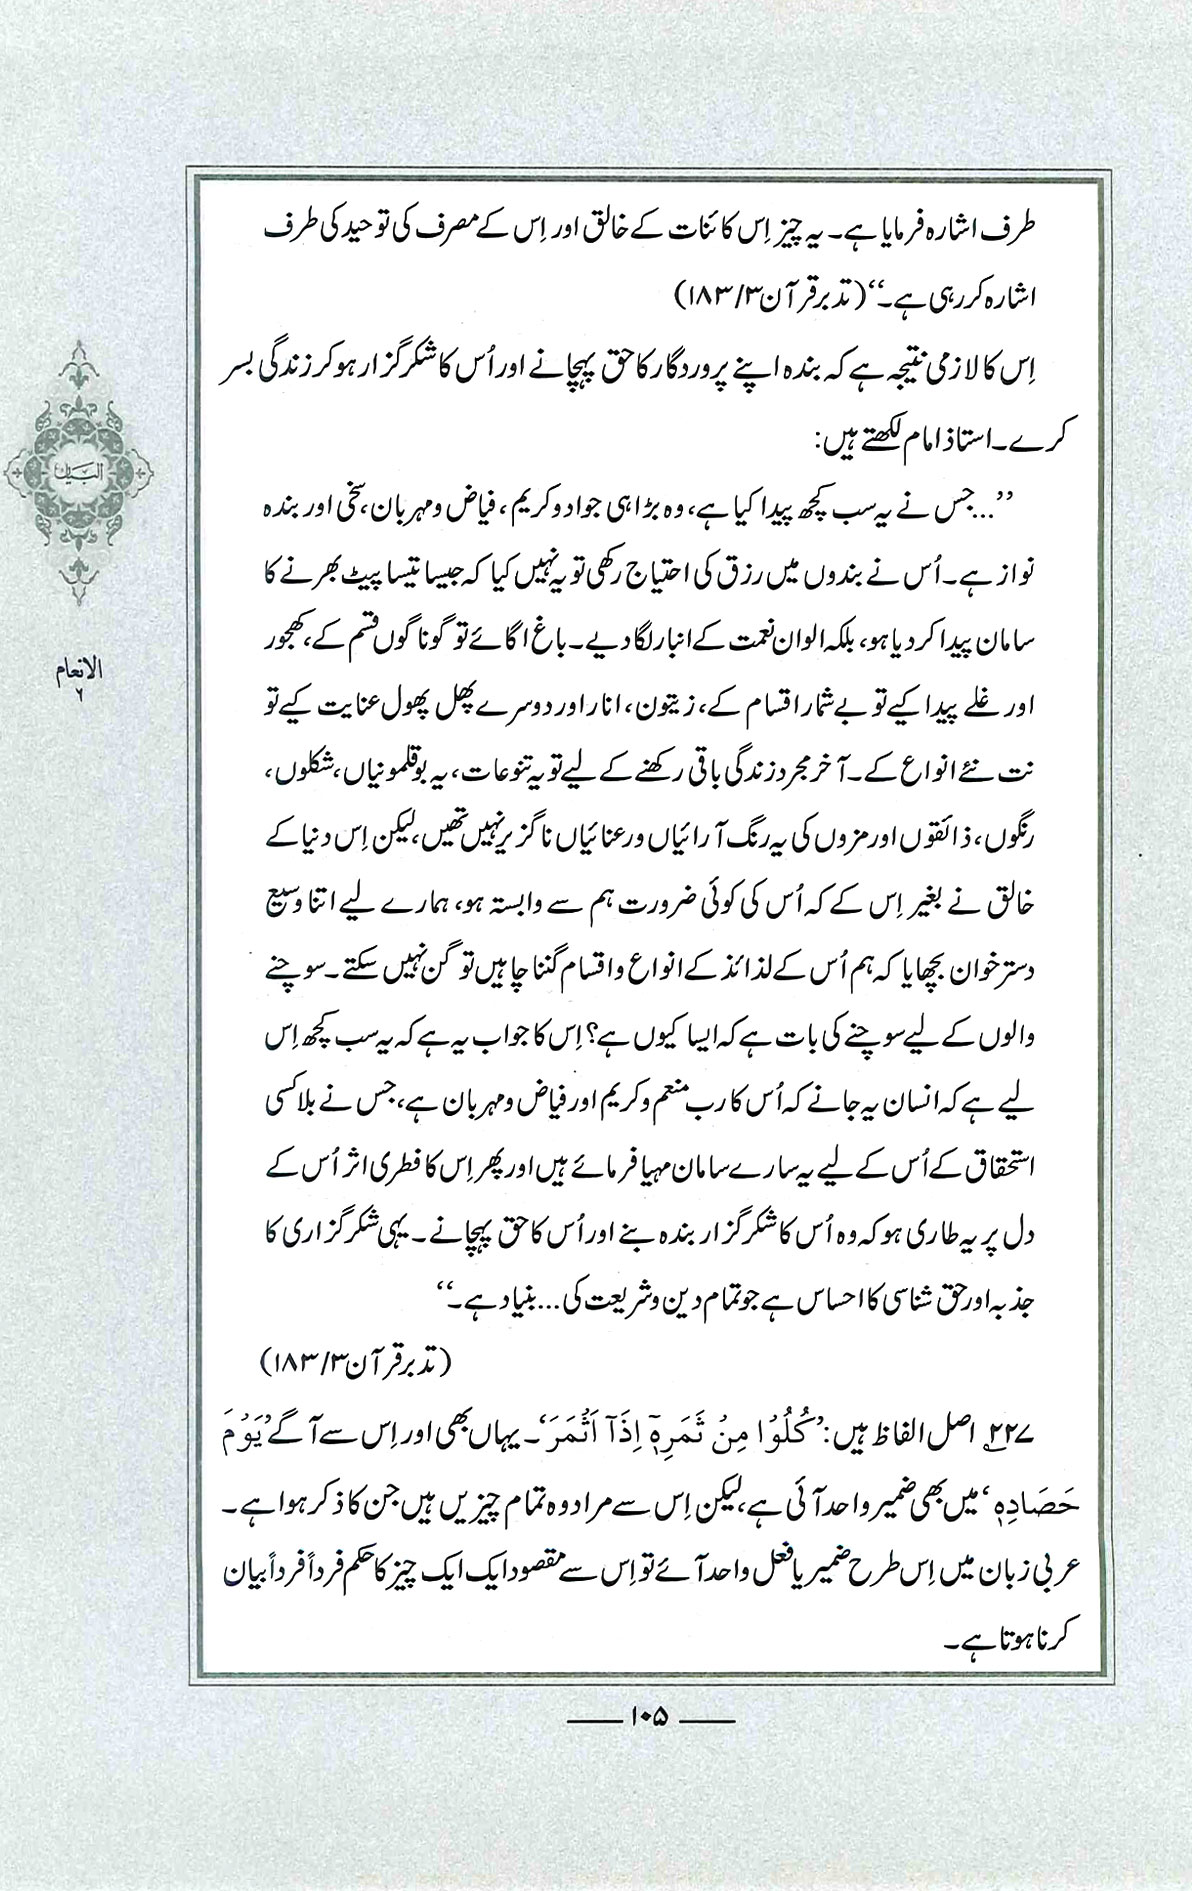 طرف اشارہ فرمایا ہے۔ یہ چیز اِس کائنات کے خالق اور اِس کے مصرف کی توحید کی طرف
اشارہ کر رہی ہے۔‘‘ (تدبر قرآن ۳/ ۱۸۳)
اِس کا لازمی نتیجہ ہے کہ بندہ اپنے پروردگار کا حق پہچانے اور اُس کا شکر گزار ہو کر زندگی بسر
کرے۔ استاذ امام لکھتے ہیں:
’’...جس نے یہ سب کچھ پیدا کیا ہے، وہ بڑا ہی جواد و کریم، فیاض و مہربان، سخی اور بندہ
نواز ہے۔ اُس نے بندوں میں رزق کی احتیاج رکھی تو یہ نہیں کیا کہ جیسا تیسا پیٹ بھرنے کا
سامان پیدا کر دیا ہو، بلکہ الوان نعمت کے انبار لگا دیے۔ باغ اگائے تو گوناگوں قسم کے، کھجور
اور غلے پیدا کیے تو بے شمار اقسام کے، زیتون، انار اور دوسرے پھل پھول عنایت کیے تو
نت نئے انواع کے۔ آخر مجرد زندگی باقی رکھنے کے لیے تو یہ تنوعات، یہ بوقلمونیاں، شکلوں،
رنگوں، ذائقوں اور مزوں کی یہ رنگ آرائیاں و رعنائیاں ناگزیر نہیں تھیں، لیکن اِس دنیا کے
خالق نے بغیر اِس کے کہ اُس کی کوئی ضرورت ہم سے وابستہ ہو، ہمارے لیے اتنا وسیع
دسترخوان بچھایا کہ ہم اُس کے لذائذ کے انواع و اقسام گننا چاہیں تو گن نہیں سکتے۔ سوچنے
والوں کے لیے سوچنے کی بات ہے کہ ایسا کیوں ہے؟ اِس کا جواب یہ ہے کہ یہ سب کچھ اِس
لیے ہے کہ انسان یہ جانے کہ اُس کا رب منعم و کریم اور فیاض و مہربان ہے، جس نے بلا کسی
استحقاق کے اُس کے لیے یہ سارے سامان مہیا فرمائے ہیں اور پھر اِس کا فطری اثر اُس کے
دل پر یہ طاری ہو کہ وہ اُس کا شکر گزار بندہ بنے اور اُس کا حق پہچانے۔ یہی شکر گزاری کا
جذبہ اور حق شناسی کا احساس ہے جو تمام دین و شریعت کی... بنیاد ہے۔‘‘
(تدبر قرآن ۳/ ۱۸۳)
۲۲۷؂ اصل الفاظ ہیں: ’كُلُوۡا مِنۡ ثَمَرِهٖۤ اِذَاۤ اَثۡمَرَ‘۔ یہاں بھی اور اِس سے آگے ’يَوۡمَ
حَصَادِهٖ‘ میں بھی ضمیر واحد آئی ہے، لیکن اِس سے مراد وہ تمام چیزیں ہیں جن کا ذکر ہوا ہے۔
عربی زبان میں اِس طرح ضمیر یا فعل واحد آئے تو اِس سے مقصود ایک ایک چیز کا حکم فرداً فرداً بیان
کرنا ہوتا ہے۔
البیان
الانعام
۶
۱۰۵